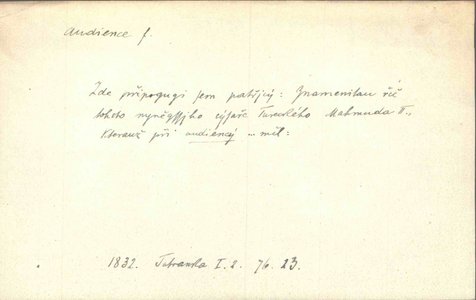 audience f.
Zde připogugi sem patřjcý: Znamenitau řeč
tohoto nyněgssjho cýsaře Tureckého Mahmuda II.,
kterauž při audiencý ... měl:
1832. Tatranka I. 2. 76. 23.